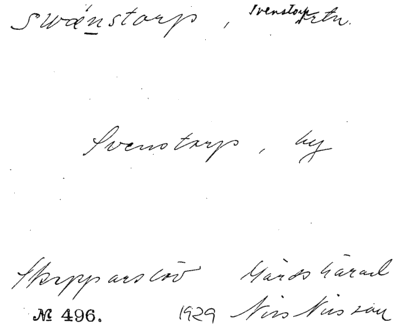 swänstorp, Svenstorp Krtn.
Svenstorp, by
Skepparslöv Gärds härad
№ 496. 1929 Nils Nilsson